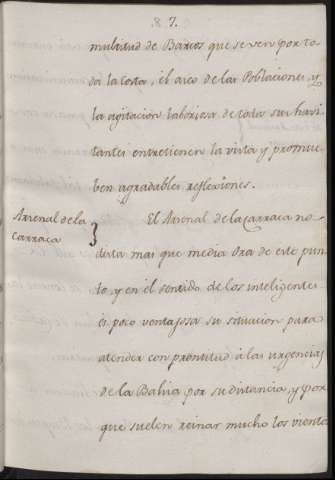 87.
multitud de Barcos que se ven por to-
da la costa, el aseo de las Poblaciones, y
la agitación laboriosa de todos sus havi-
tantes entretienen la vista y promue-
ben agradables reflexiones.
Arsenal de la
Carraca
El Arsenal de la Carraca no
dista mas que media Ora de este pun-
to, y en el sentido de los inteligentes
es poco ventajosa su situacion para
atender con prontitud á las urgencias
de la Bahia por su distancia, y por
que suelen reinar mucho los vientos